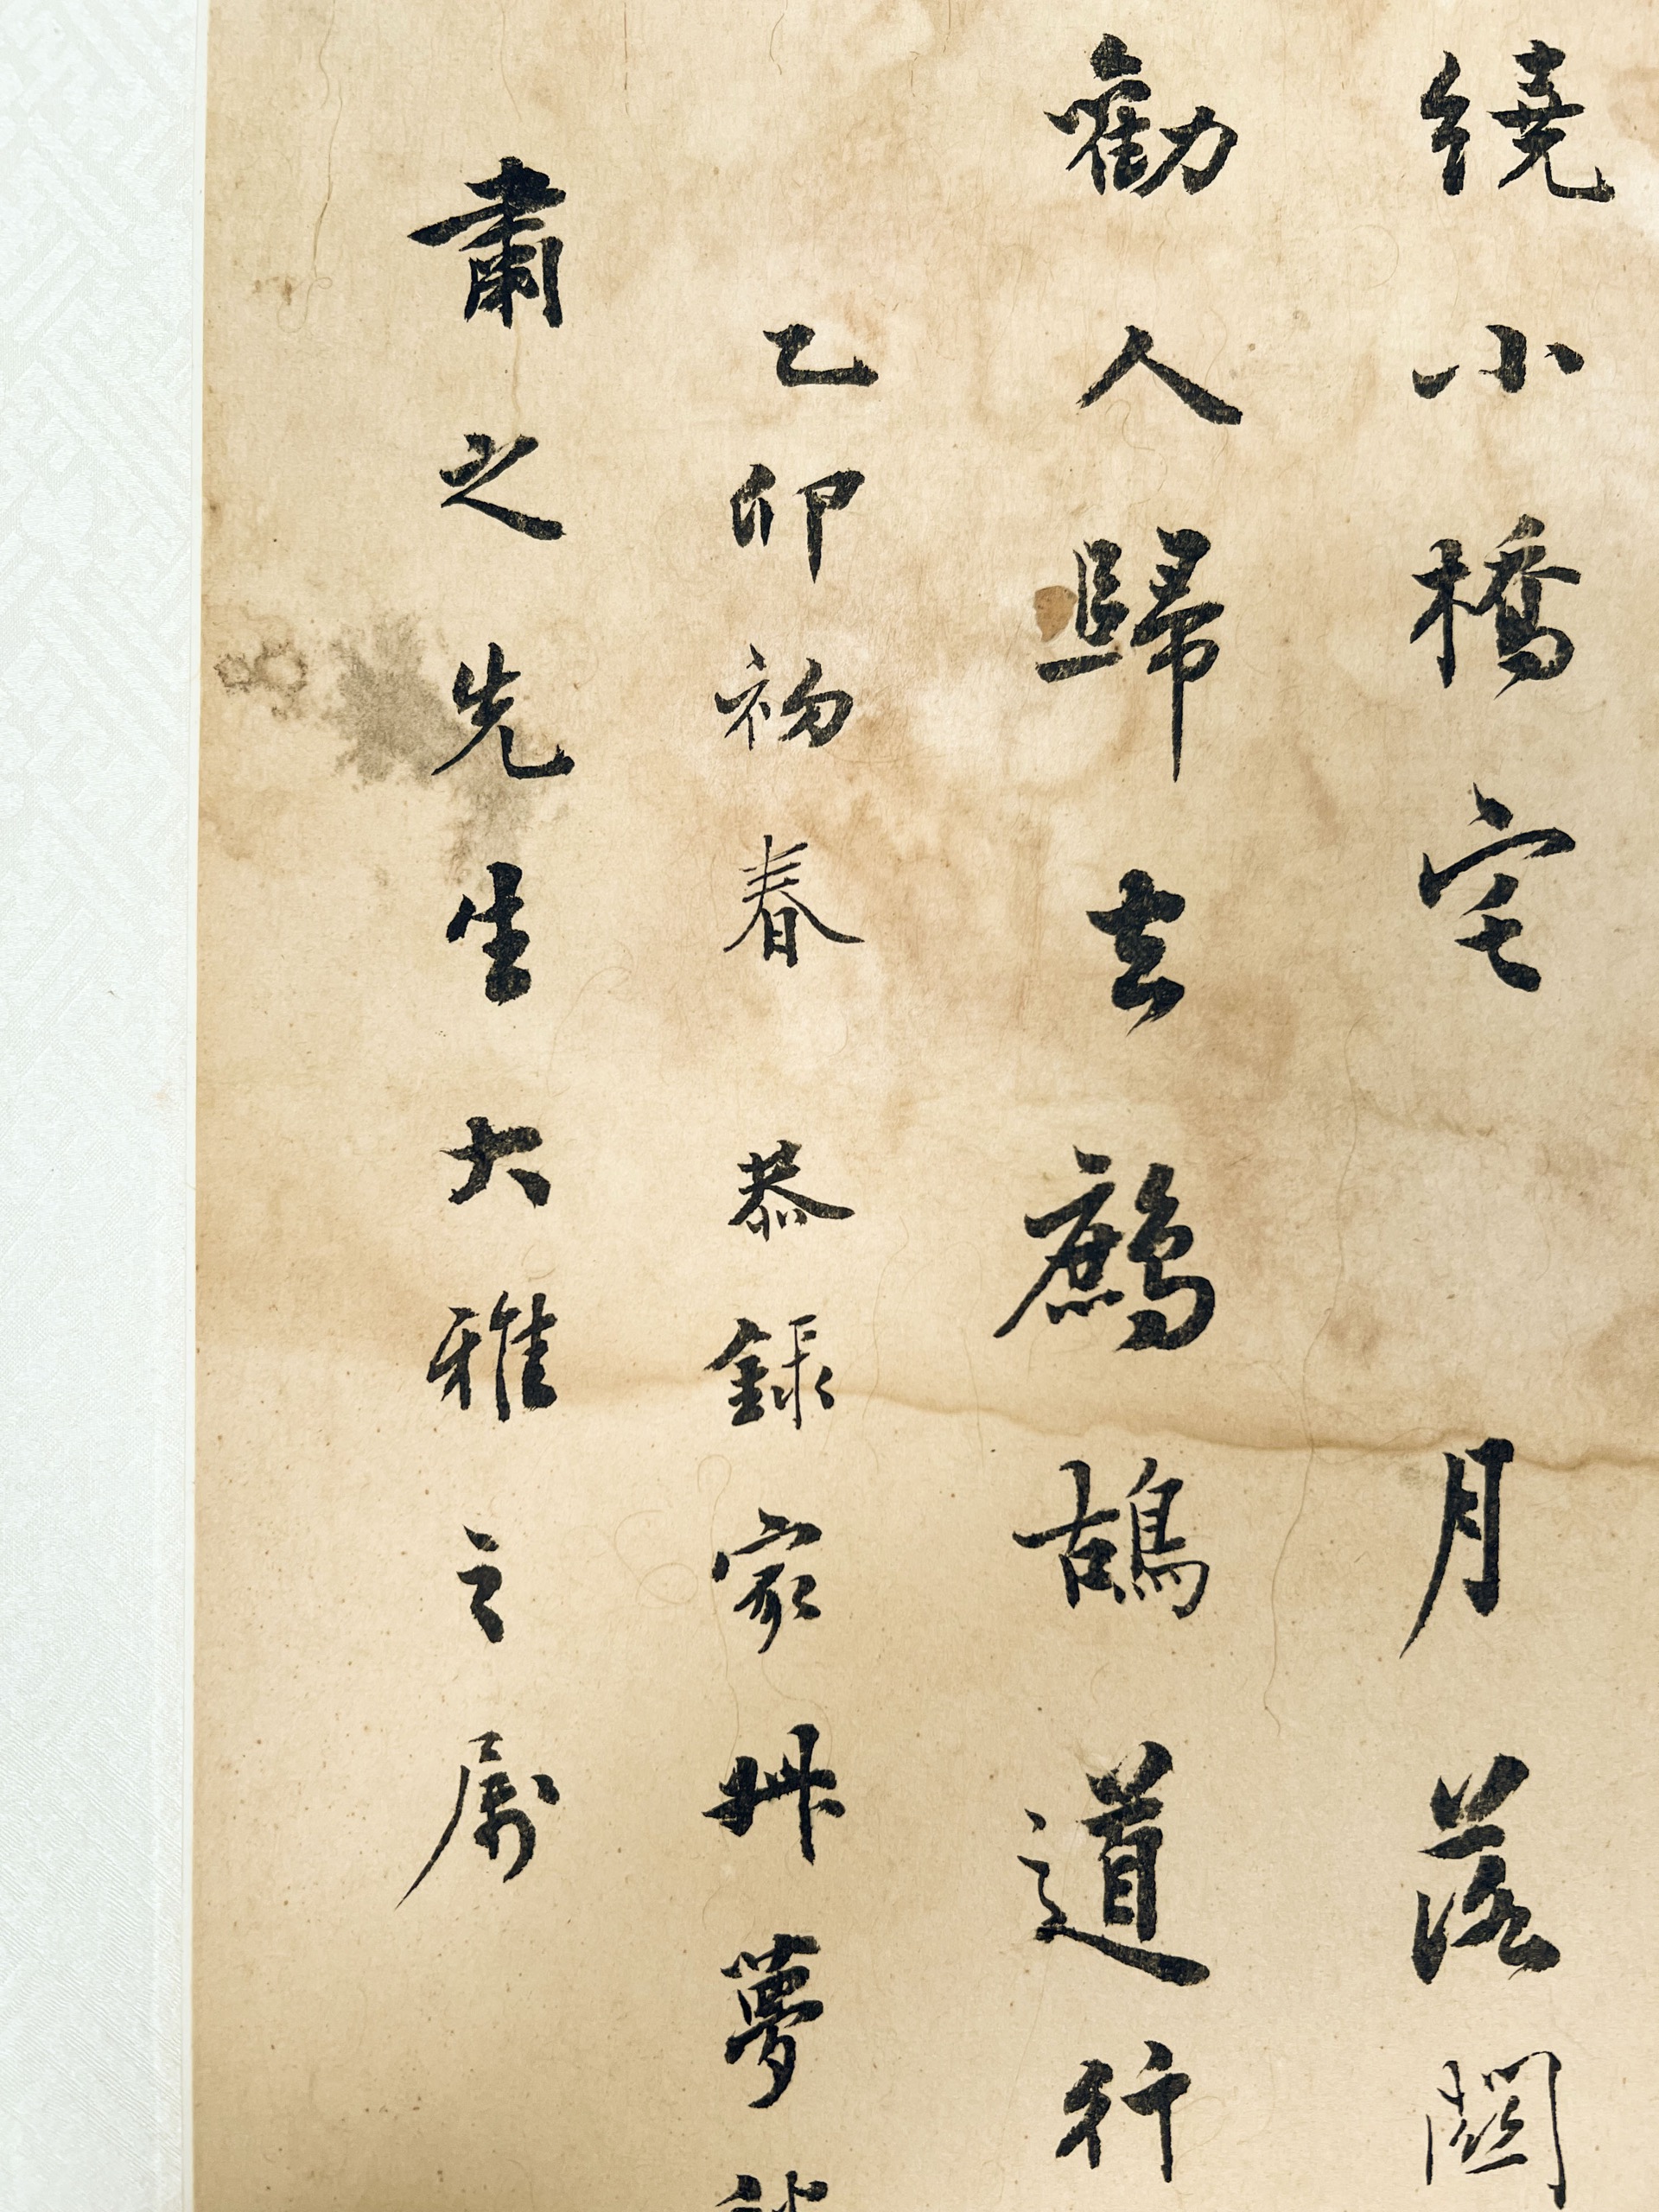 繞小橋宅月落闗
勸人歸去鷓鴣道行
乙卯初春恭録家艸夢
肅之先生大雅之屬